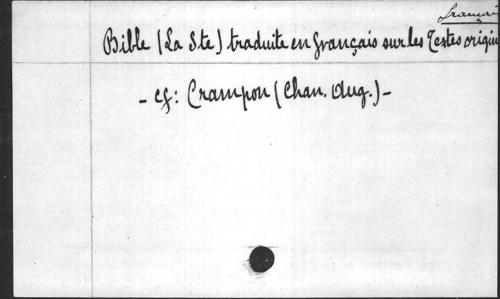 Bible (La Ste) traduite en français sur les Textes origin
- cf: Crampon (Chan. Aug.) -